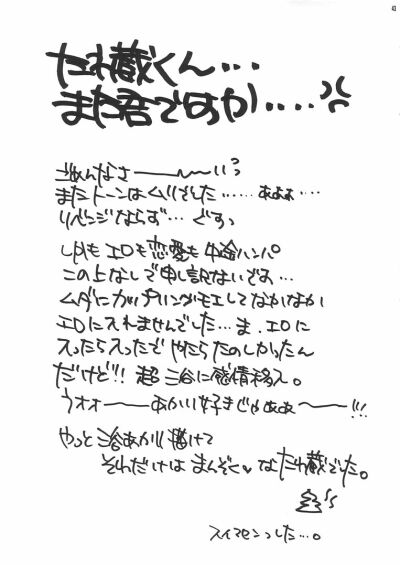 たわ蔵くん・・・
また君ですか・・・・
ごめんなさ――~~いっ
またトーンはムリでした・・・・・・あよぉ・・・・
リベンジならず・・・ぐすっ
しかも エロも恋愛も中途ハンパ。
この上なしで申し訳ないです・・・
ムダにカップリングがモエしてなかなか
エロに入れませんでした・・・ま、エロに
入ったら入ったで やたらたのしかったん
だけど!! 超 三谷に感情移入。
ウオォ――あかり好きじゃあぁ――~!!!
やっと 三谷あかり 描けて
それだけは まんぞく♥な たわ蔵でした。
スイマセンっした・・・。